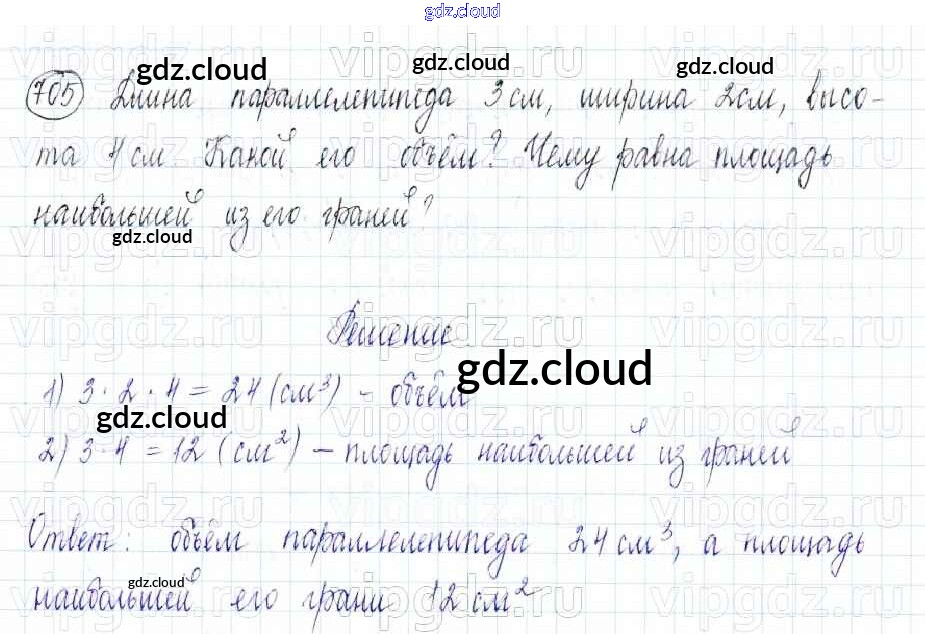 gdz.cloud
gdz.cloud gdz.cloud gdz.cloud
705 Длина параллелепипеда 3 см, ширина 2см, высо-
та 4 см. Какой его объём? Чему равна площадь
наибольшей из его граней?
gdz.cloud
vipgdz.ru vipgdz.ru vipgdz.ru
Решение
gdz.cloud
1) 3 · 2 · 4 = 24 (см³) - объём
gdz.cloud
2) 3 · 4 = 12 (см²) – площадь наибольшей из граней
Ответ: объём параллелепипеда 24 см³, а площадь
gdz.cloud
наибольшей его грани 12 см²